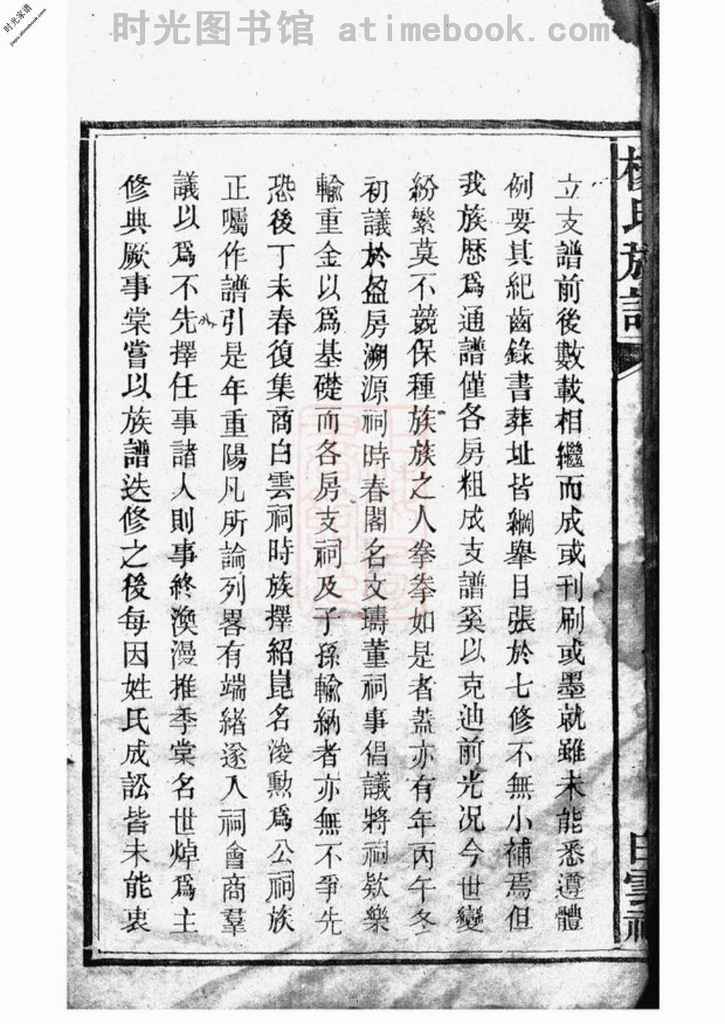 时光图书馆 atimebook.com
时光家谱
jiapu.atimebook.com
楊氏族譜
白雲祠
立支譜前後數載相繼而成或刊刷或墨就雖未能悉遵體
例要其紀齒錄書葬址皆綱舉目張於七修不無小補焉但
我族歷爲通譜僅各房粗成支譜奚以克迪前光况今世變
紛繁莫不競保種族族之人拳拳如是者蓋亦有年丙午冬
初議於盈房溯源祠時春閣名文璹董祠事倡議將祠欵樂
輸重金以爲基礎而各房支祠及子孫輸納者亦無不爭先
恐後丁未春復集商白雲祠時族擇紹崑名浚勲爲公祠族
正囑作譜引是年重陽凡所論列畧有端緒遂入祠會商羣
議以爲不先擇任事諸人則事終渙漫推季棠名世焯爲主
修典厥事棠嘗以族譜迭修之後每因姓氏成訟皆未能衷